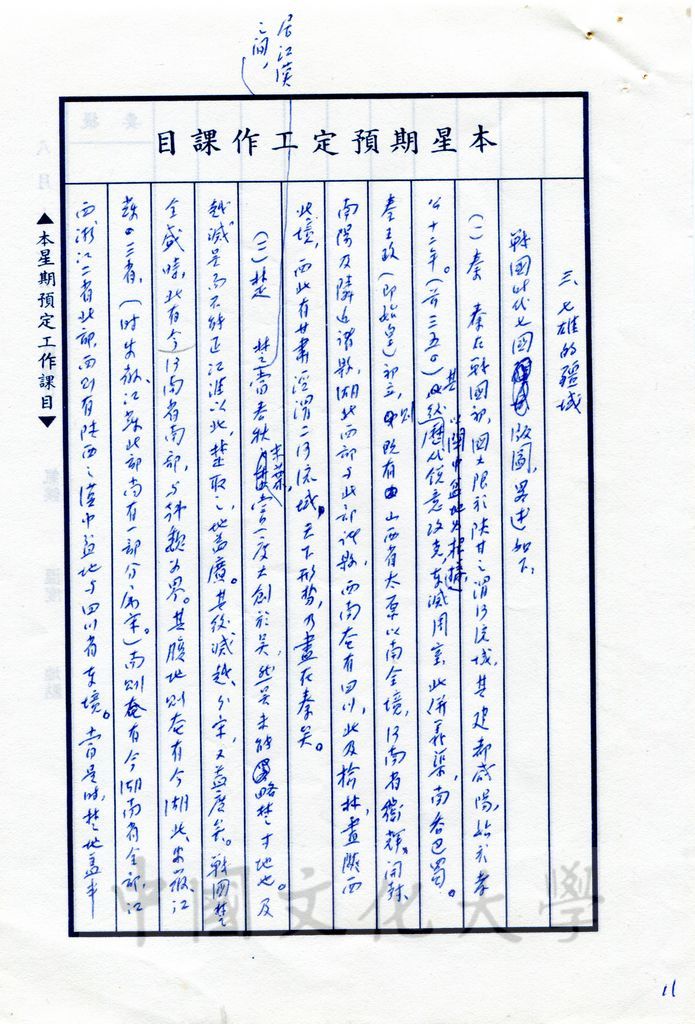 居江漢
之間,
本星期預定工作課目
三、七雄的疆域
戰國時代七國版圖,畧述如下:
(一)秦 秦在戰國初,國土限於陝甘之渭河流域,其建都咸陽,始於孝
公十二年。(前三五〇)其後歷代銳意攻克,以關中盆地為根據,東滅周室,北併義渠,南吞巴蜀。
秦王政(即始皇)初立,則既有山西省太原以南全境,河南省衛輝、開封、
南陽及隣近諸縣,湖北西部與北部諸縣,西南奄有四川,北及榆林,盡陝西
北境,西北有甘肅涇渭二河流域,天下形勢,乃盡在秦矣。
(二)楚 楚當春秋末葉,嘗一度大創於吳,然吳未能略楚寸地也。及
越滅吳而不能正江淮以北,楚取之,地益廣。其後滅越、分宋,又益廣矣。戰國楚
全盛時,北有今河南省南部,与韓魏為界。其腹地則奄有今湖北、安徽、江
蘇三省,(時安徽、江蘇北部尚有一部分屬宋)南則奄有今湖南省全部,江
西浙江二省北部,西則有陝西之漢中盆地与四川省東境。當是時,楚地蓋半
▲本星期預定工作課目▼
中國文化大學
11